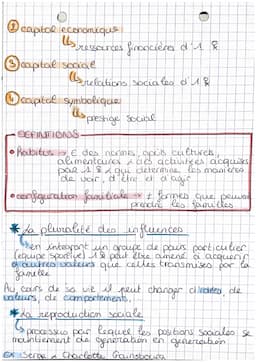 ② capital économique
↳ ressources financières d'1
③ capital social
↳ relations sociales d'1
④ capital symbolique
↳ prestige social
DEFINITIONS
• Habitus → E des normes, goûts culturels,
alimentaires, des activités acquises
par 1 & qui détermine les manières
de voir, d'être et d'agir
• configuration familiale → ≠ formes que peuvent
prendre les familles
* La pluralité des influences
↳ en intégrant un groupe de pairs particulier
(équipe sportive) 1 peut être amené à acquérir
d'autres valeurs que celles transmises par la
famille
Au cours de sa vie il peut changer d'idées, de
valeurs, de comportements.
* La reproduction sociale
↳ processus par lequel les positions sociales se
maintiennent de génération en génération
Ex: Serge & Charlotte Gainsbourg